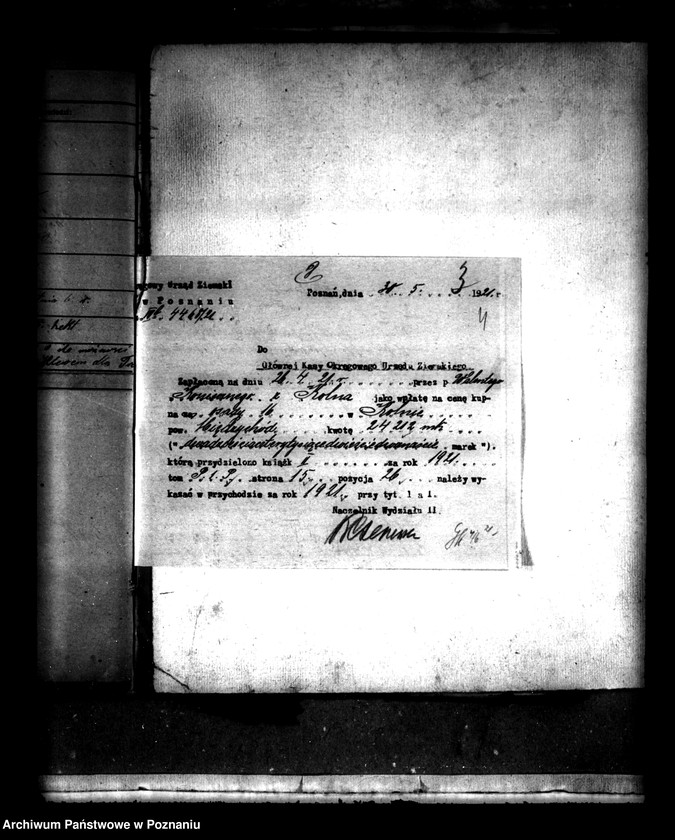 gowy Urząd Ziemski
w Poznaniu
Nr. 4468/21
Poznań, dnia 30. 5. 1921 r.
3
4
Do
Głównej Kasy Okręgowego Urządu Ziemskiego
Zapłaconą na dniu 26. 4. 21 r. przez p. Walentego
z Kolna jako wpłatę na cenę kup-
na osady 16 w Kolnie
pow. Międzychód kwotę 24 212 mk
(" dwadzieściaczterytysiącedwieściedwanaście marek ").
którą przydzielono książk I za rok 1921
tom strona 15 pozycja 26 należy wy-
kazać w przychodzie za rok 1921 przy tyt. 1 a 1.
Naczelnik Wydziału II.
hekt
Archiwum Państwowe w Poznaniu